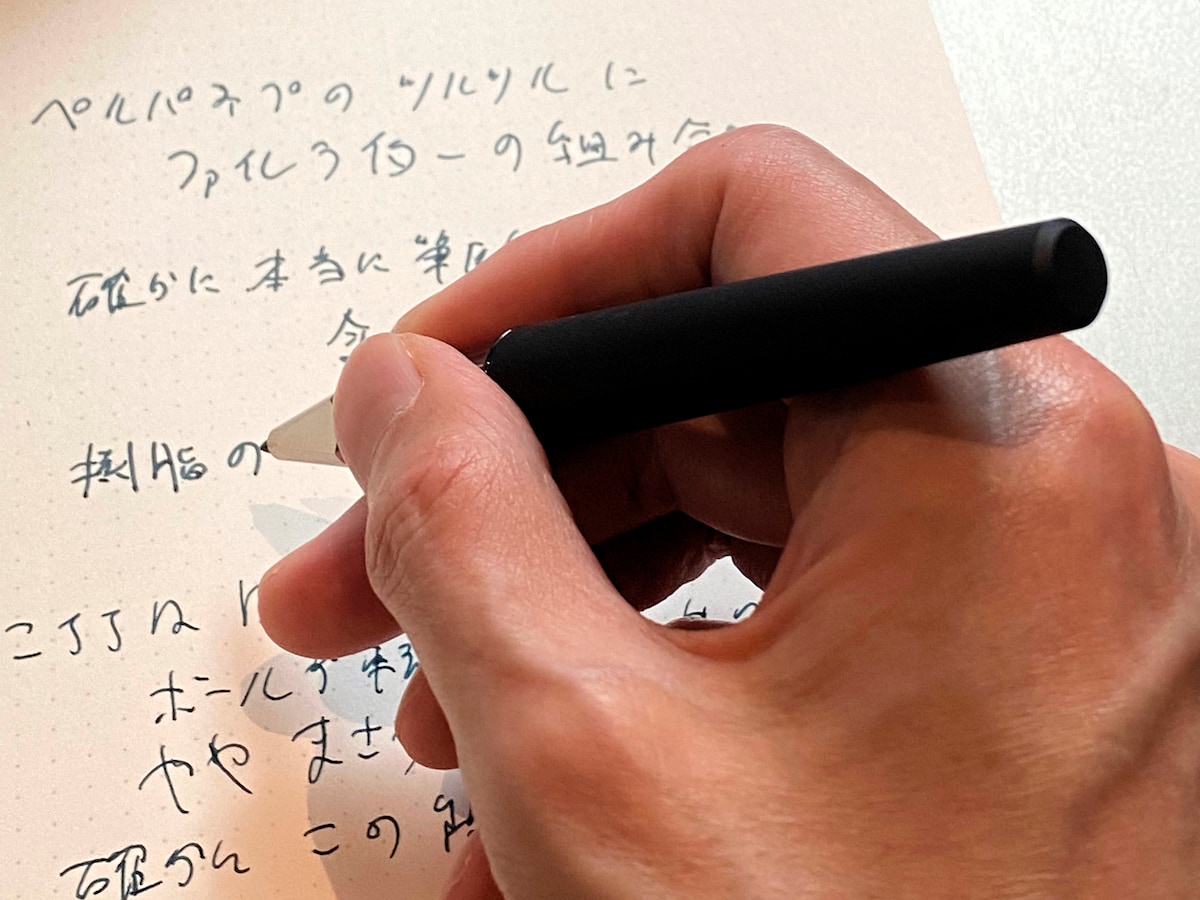 ペルパネプの ツルツル に
ファイルライターの 組み合
確かに 本当に 筆圧
樹脂の
こっちは
ボールが
やや まさ
確かに この